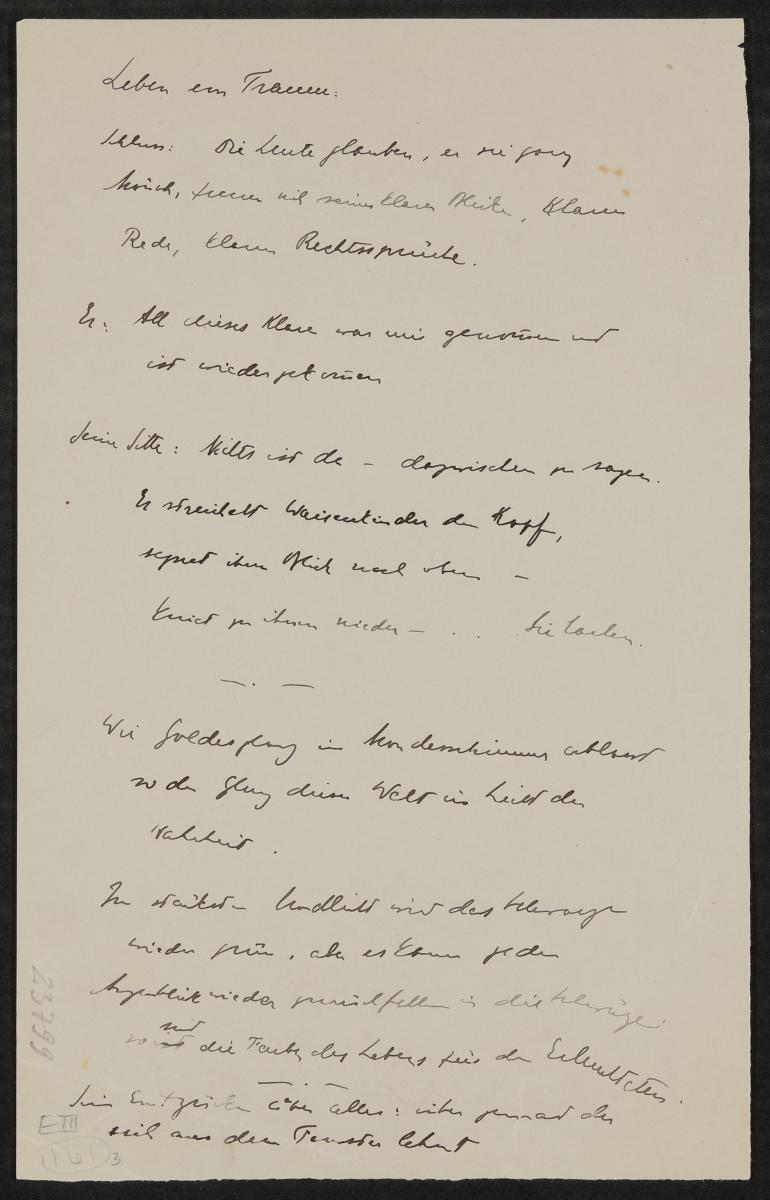 Leben ein Traum:
Schluss: Die Leute glauben, er sei ganz
Mönch, seinen klaren Blick, klaren
Rede, klaren Rechtssprüche.
Er: All dieses Klare war mir genom̄en und
ist wiedergekom̄en
Seine Sitte: Nichts ist da – dazwischen zu sagen.
Er streichelt Waisenkinder den Kopf,
segnet ihren Blick nach oben –
Kniet zu ihnen nieder – . . Sie lachen.
— . —
Wie Goldesglanz im Mondesschimmer erblasst
so der Glanz dieser Welt im Licht der
Wahrheit.
Im Mondlicht wird das Schwarze
wieder grün, aber es kann jeden
Augenblick wieder zurückfallen in die Schwärze
so sind die Farben des Lebens für den Erleuchteten.
— . —
Sein Entzücken über alles: über jemand der
sich aus dem Fenster lehnt
23799
E III
161
3